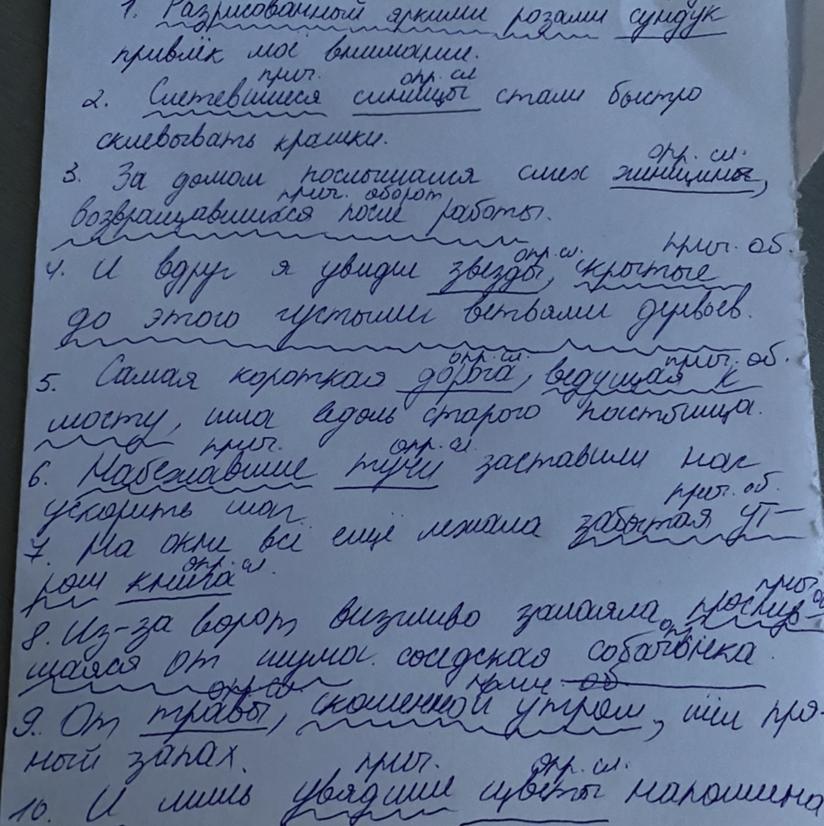 1. Разрисованный яркими розами сундук
привлёк моё внимание.
прич. опр. сл
2. Слетевшиеся синицы стали быстро
склевывать крошки.
опр. сл.
3. За домом послышался смех женщины,
прич. оборот
возвращавшихся после работы.
опр. сл. прич. об.
4. И вдруг я увидел звезды, скрытые
до этого густыми ветвями деревьев.
опр. сл. прич. об.
5. Самая короткая дорога, ведущая к
мосту, шла вдоль старого пастбища.
прич. опр. сл.
6. Набежавшие тучи заставили нас
ускорить шаг.
прич. об.
7. На окне всё ещё лежала забытая ут-
опр. сл.
ром книга.
прич об
8. Из-за ворот визгливо залаяла проснув-
щаяся от шума соседская собачонка.
опр. сл. прич об
9. От травы, скошенной утром, шёл пря-
ный запах.
прич. опр. сл.
10. И лишь увядшие цветы напомина